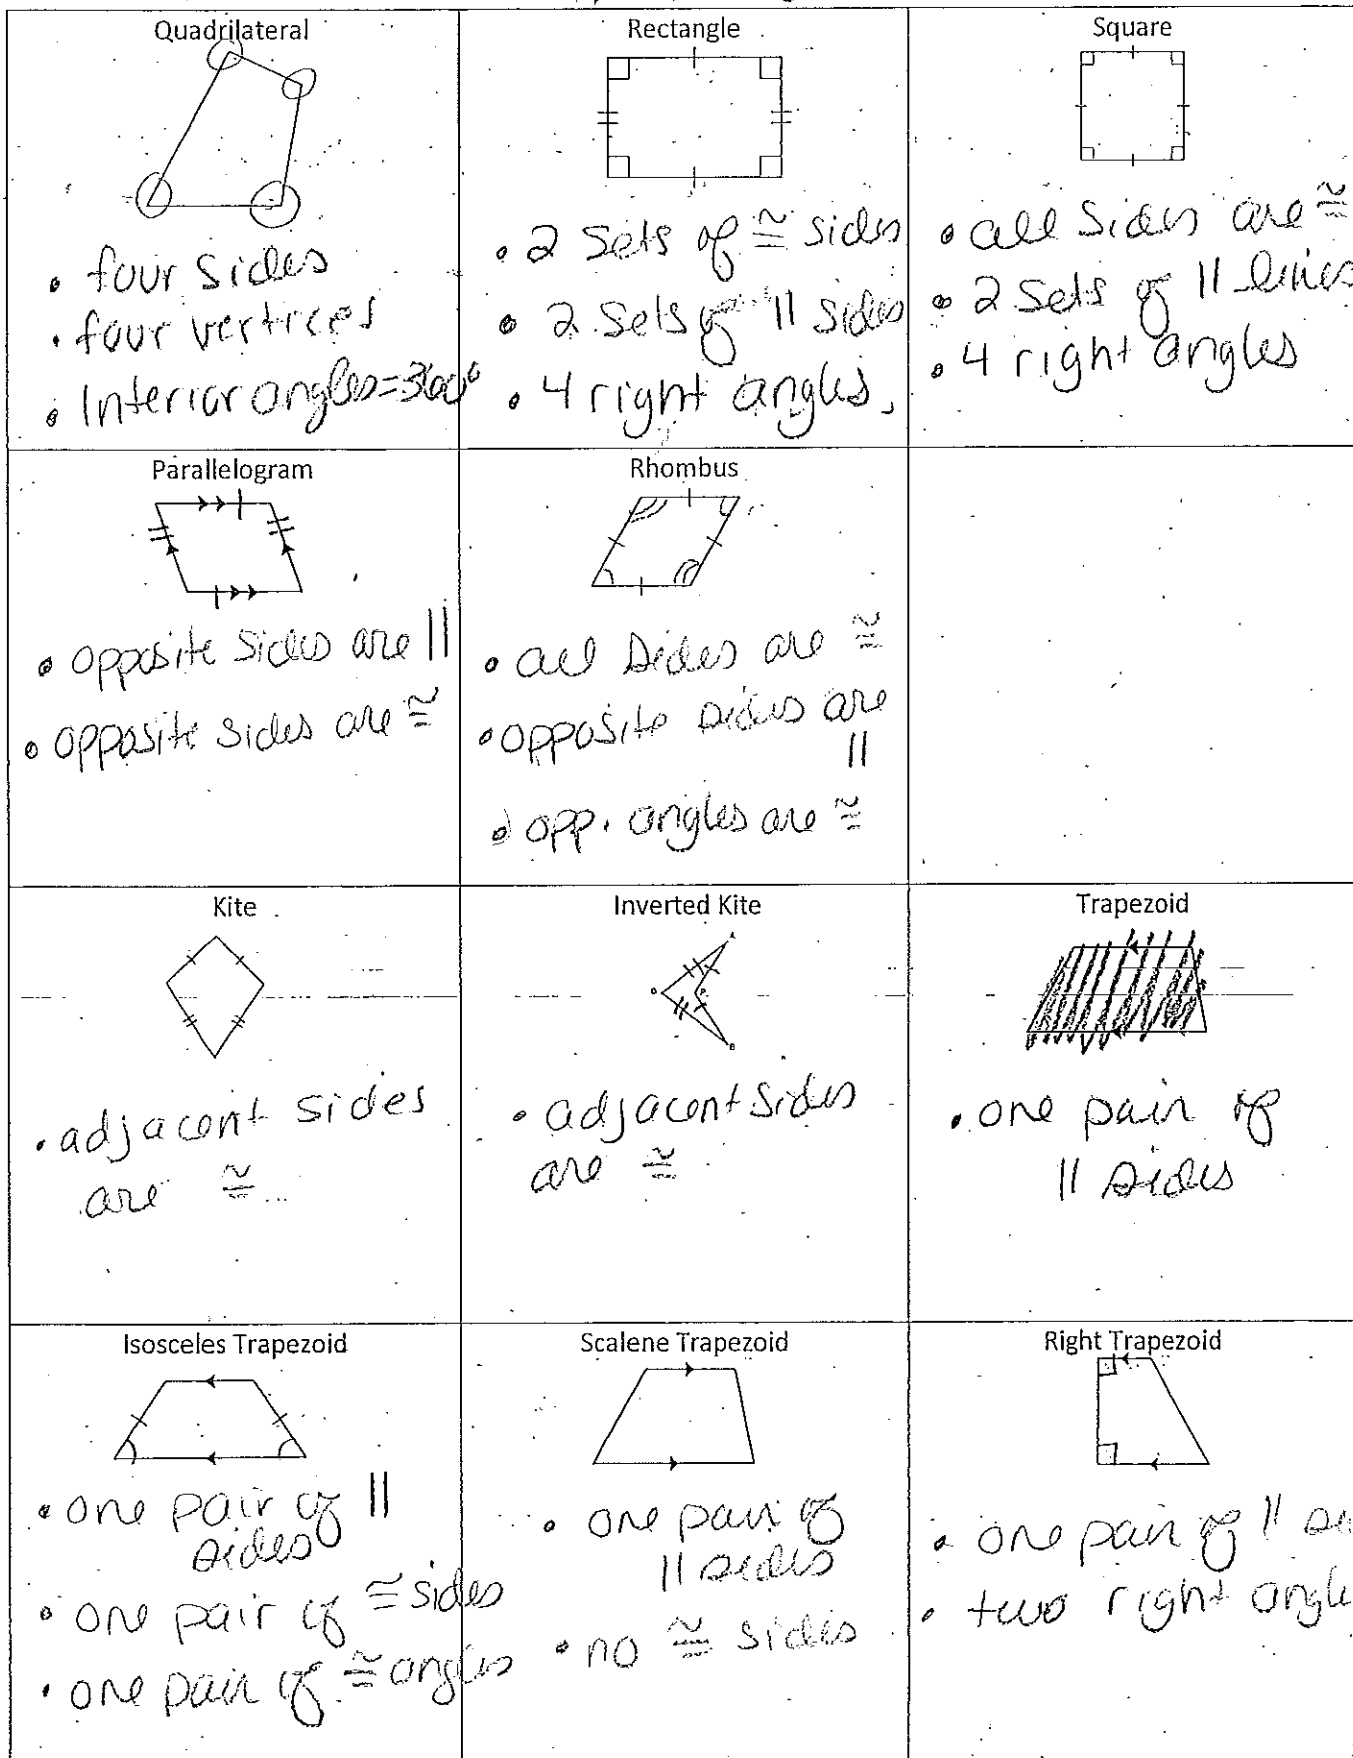 Quadrilateral
• four sides
• four vertices
• Interior angles=360°
Rectangle
• 2 sets of ≅ sides
• 2 sets of || sides
• 4 right angles,
Square
• all sides are ≅
• 2 sets of || lines
• 4 right angles
Parallelogram
• opposite sides are ||
• opposite sides are ≅
Rhombus
• all sides are ≅
• opposite sides are
||
• opp. angles are ≅
Kite
• adjacent sides
are ≅
Inverted Kite
A
B
• adjacent sides
are ≅
Trapezoid
• one pair of
|| sides
Isosceles Trapezoid
• one pair of ||
sides
• one pair of ≅ sides
• one pair of ≅ angles
Scalene Trapezoid
• one pair of
|| sides
• no ≅ sides
Right Trapezoid
• one pair of ||
• two right angle